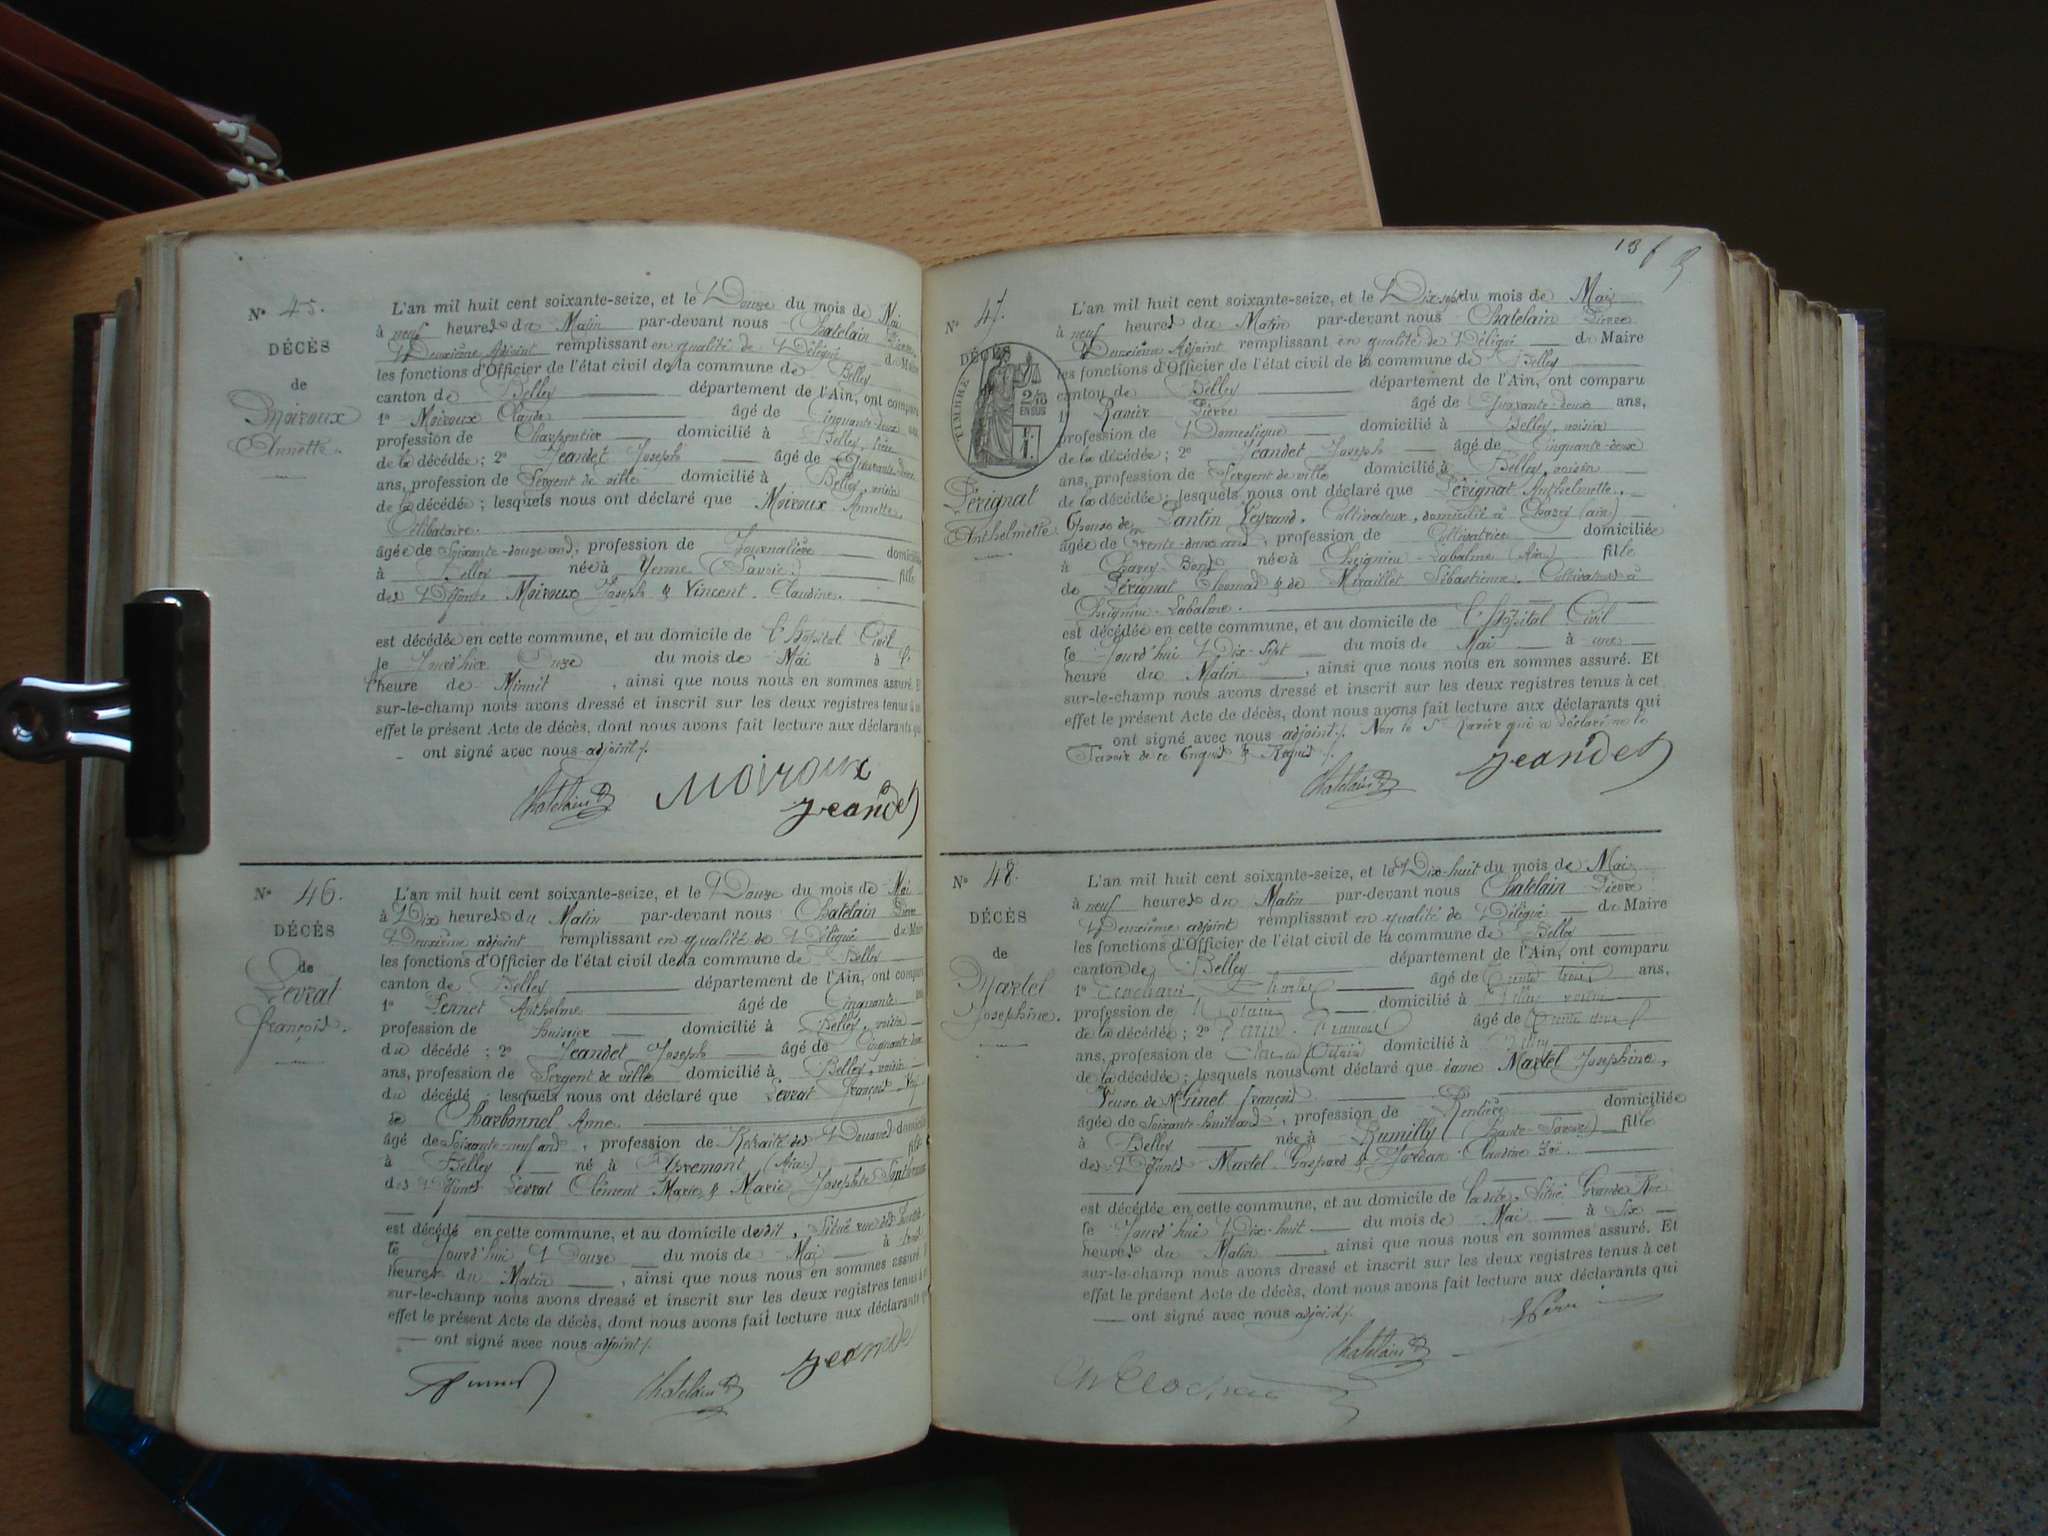 N° 45.
DÉCÈS
de
Moiroux
Annette.
L'an mil huit cent soixante-seize, et le Douze du mois de Mai
à neuf heures du Matin par-devant nous Chatelain Pierre
Deuxième Adjoint remplissant en qualité de Délégué du Maire
les fonctions d'Officier de l'état civil de la commune de Belley
canton de Belley département de l'Ain, ont comparu
1° Moiroux Claude âgé de Cinquante-deux ans
profession de Charpentier domicilié à Belley, frère
de la décédée; 2° Jeandet Joseph âgé de
ans, profession de Sergent de ville domicilié à Belley, voisin
de la décédée; lesquels nous ont déclaré que Moiroux Annette,
Célibataire.
âgée de Soixante-douze ans, profession de Journalière domiciliée
à Belley née à Yenne (Savoie.) fille
des Défunts Moiroux Joseph & Vincent Claudine.
est décédée en cette commune, et au domicile de l'hôpital Civil
le Jourd'hui Douze du mois de Mai à
l'heure de Minuit, ainsi que nous nous en sommes assuré. Et
sur-le-champ nous avons dressé et inscrit sur les deux registres tenus à cet
effet le présent Acte de décès, dont nous avons fait lecture aux déclarants qui
ont signé avec nous adjoint /.
Chatelain Moiroux
Jeandet
N° 46.
DÉCÈS
de
Levrat
François.
L'an mil huit cent soixante-seize, et le Douze du mois de Mai
à Dix heures du Matin par-devant nous Chatelain Pierre
Deuxième adjoint remplissant en qualité de Délégué du Maire
les fonctions d'Officier de l'état civil de la commune de Belley
canton de Belley département de l'Ain, ont comparu
1° Pennet Anthelme âgé de Cinquante ans
profession de huissier domicilié à Belley, voisin
du décédé; 2° Jeandet Joseph âgé de Cinquante-deux
ans, profession de Sergent de ville domicilié à Belley, voisin
du décédé; lesquels nous ont déclaré que Levrat François
de Charbonnel Anne
âgé de Soixante-neuf ans, profession de Retraité des Douanes domicilié
à Belley né à Apremont (Ain) fils
des Défunts Levrat Clément Marie & Marie Josephte
est décédé en cette commune, et au domicile dudit, Situé rue des
le Jourd'hui Douze du mois de Mai à
heures du Matin, ainsi que nous nous en sommes assuré. Et
sur-le-champ nous avons dressé et inscrit sur les deux registres tenus à cet
effet le présent Acte de décès, dont nous avons fait lecture aux déclarants qui
ont signé avec nous adjoint /.
Chatelain Jeandet
N° 47.
DÉCÈS
TIMBRE
2/10
EN SUS
Pérignat
Anthelmette
L'an mil huit cent soixante-seize, et le Dix-sept du mois de Mai
à neuf heures du Matin par-devant nous Chatelain Pierre
Deuxième Adjoint remplissant en qualité de Délégué du Maire
les fonctions d'Officier de l'état civil de la commune de Belley
canton de Belley département de l'Ain, ont comparu
1° Ravier Pierre âgé de Quarante-deux ans,
profession de Domestique domicilié à Belley, voisin
de la décédée; 2° Jeandet Joseph âgé de Cinquante-deux
ans, profession de Sergent de ville domicilié à Belley, voisin
de la décédée; lesquels nous ont déclaré que Pérignat Anthelmette,
Épouse de Pantin Cultivateur, domicilié à Chazey (ain)
âgée de Trente-deux ans, profession de Cultivatrice domiciliée
à Chazey-Bons née à Cheignieu-Labalme (Ain) fille
de Pérignat & de Miraillet Sébastienne, Cultivateurs à
Cheignieu-Labalme.
est décédée en cette commune, et au domicile de l'hôpital Civil
le Jourd'hui Dix-Sept du mois de Mai à une
heure du Matin, ainsi que nous nous en sommes assuré. Et
sur-le-champ nous avons dressé et inscrit sur les deux registres tenus à cet
effet le présent Acte de décès, dont nous avons fait lecture aux déclarants qui
ont signé avec nous adjoint /. Non le Sr Ravier qui a déclaré ne le
Savoir de ce Enquis & Requis /.
Chatelain Jeandet
N° 48.
DÉCÈS
de
Martel
Josephine.
L'an mil huit cent soixante-seize, et le Dix-huit du mois de Mai
à neuf heures du Matin par-devant nous Chatelain Pierre
Deuxième adjoint remplissant en qualité de Délégué du Maire
les fonctions d'Officier de l'état civil de la commune de Belley
canton de Belley département de l'Ain, ont comparu
1° Charles âgé de Trente trois ans,
profession de Notaire domicilié à Belley voisin
de la décédée; 2° François âgé de
ans, profession de Clerc de Notaire domicilié à Belley
de la décédée; lesquels nous ont déclaré que dame Martel Josephine,
Veuve de Mr Ginet François
âgée de Soixante-huit ans, profession de Rentière domiciliée
à Belley née à Rumilly (Haute-Savoie) fille
des Défunts Martel Gaspard & Jordan Claudine
est décédée en cette commune, et au domicile de Ladite, Situé Grande Rue
le Jourd'hui Dix-huit du mois de Mai à Six
heures du Matin, ainsi que nous nous en sommes assuré. Et
sur-le-champ nous avons dressé et inscrit sur les deux registres tenus à cet
effet le présent Acte de décès, dont nous avons fait lecture aux déclarants qui
ont signé avec nous adjoint /.
Chatelain